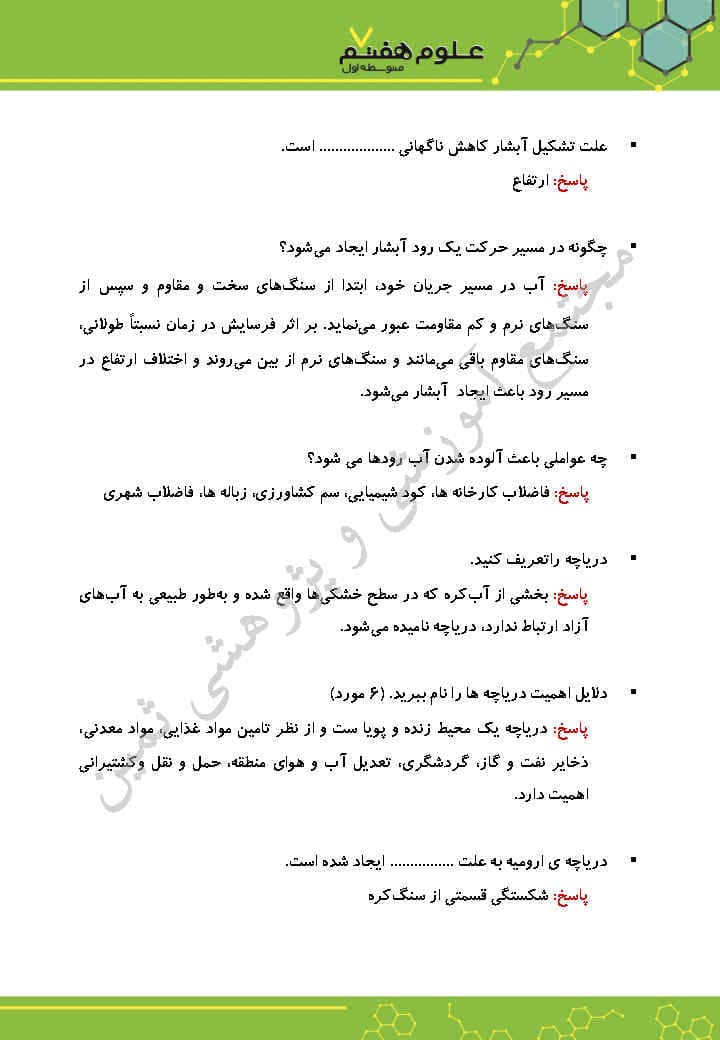 علوم هفتم ۷
متوسطه اول
▪ علت تشکیل آبشار کاهش ناگهانی ................... است.
پاسخ: ارتفاع
▪ چگونه در مسیر حرکت یک رود آبشار ایجاد می‌شود؟
پاسخ: آب در مسیر جریان خود، ابتدا از سنگ‌های سخت و مقاوم و سپس از
سنگ‌های نرم و کم مقاومت عبور می‌نماید. بر اثر فرسایش در زمان نسبتاً طولانی،
سنگ‌های مقاوم باقی می‌مانند و سنگ‌های نرم از بین می‌روند و اختلاف ارتفاع در
مسیر رود باعث ایجاد آبشار می‌شود.
▪ چه عواملی باعث آلوده شدن آب رودها می شود؟
پاسخ: فاضلاب کارخانه ها، کود شیمیایی، سم کشاورزی، زباله ها، فاضلاب شهری
▪ دریاچه راتعریف کنید.
پاسخ: بخشی از آب‌کره که در سطح خشکی‌ها واقع شده و به‌طور طبیعی به آب‌های
آزاد ارتباط ندارد، دریاچه نامیده می‌شود.
▪ دلایل اهمیت دریاچه ها را نام ببرید. (۶ مورد)
پاسخ: دریاچه یک محیط زنده و پویا ست و از نظر تامین مواد غذایی، مواد معدنی،
ذخایر نفت و گاز، گردشگری، تعدیل آب و هوای منطقه، حمل و نقل وکشتیرانی
اهمیت دارد.
▪ دریاچه ی ارومیه به علت ................ ایجاد شده است.
پاسخ: شکستگی قسمتی از سنگ‌کره
مجتمع آموزشی و پژوهشی ثمین